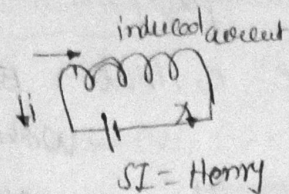 induced current
i
SI = Henry